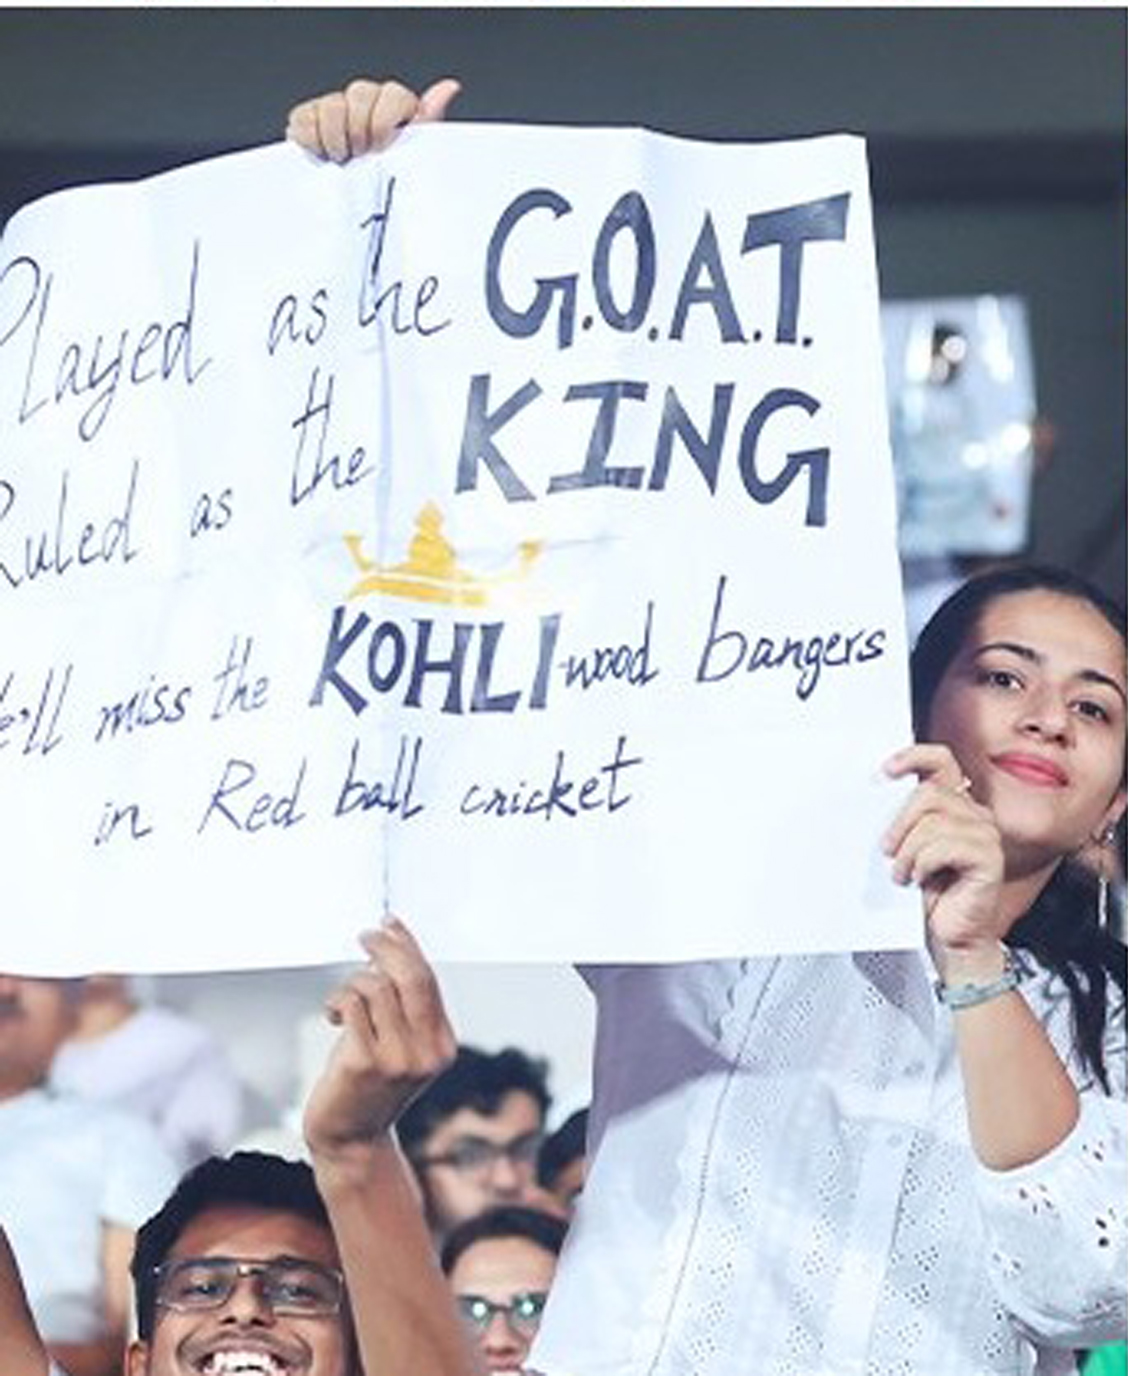 Played as the G.O.A.T.
Ruled as the KING
We'll miss the KOHLI-wood bangers
in Red ball cricket